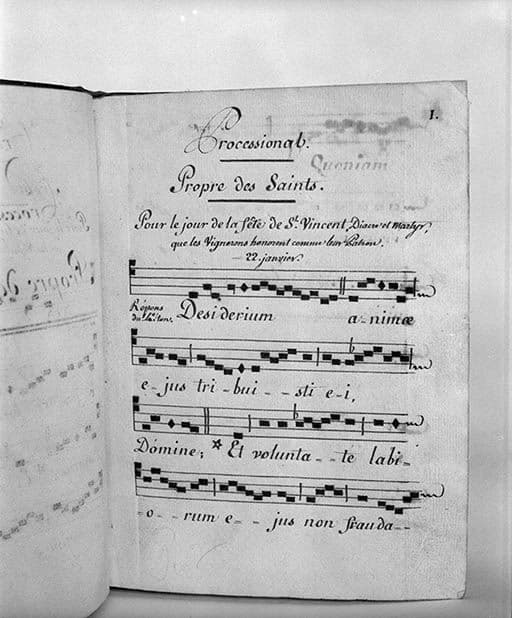 1.
Processional.
Quoniam
Propre des Saints.
Pour le jour de la fête de St. Vincent, Diacre et Martyr,
que les Vignerons honorent comme leur Patron.
22. janvier.
Répons
Desiderium a-nimæ
e-jus tri-bui--sti e-i,
Dómine; * Et volunta--te labi-
-o--rum e--jus non frauda--
Propre de